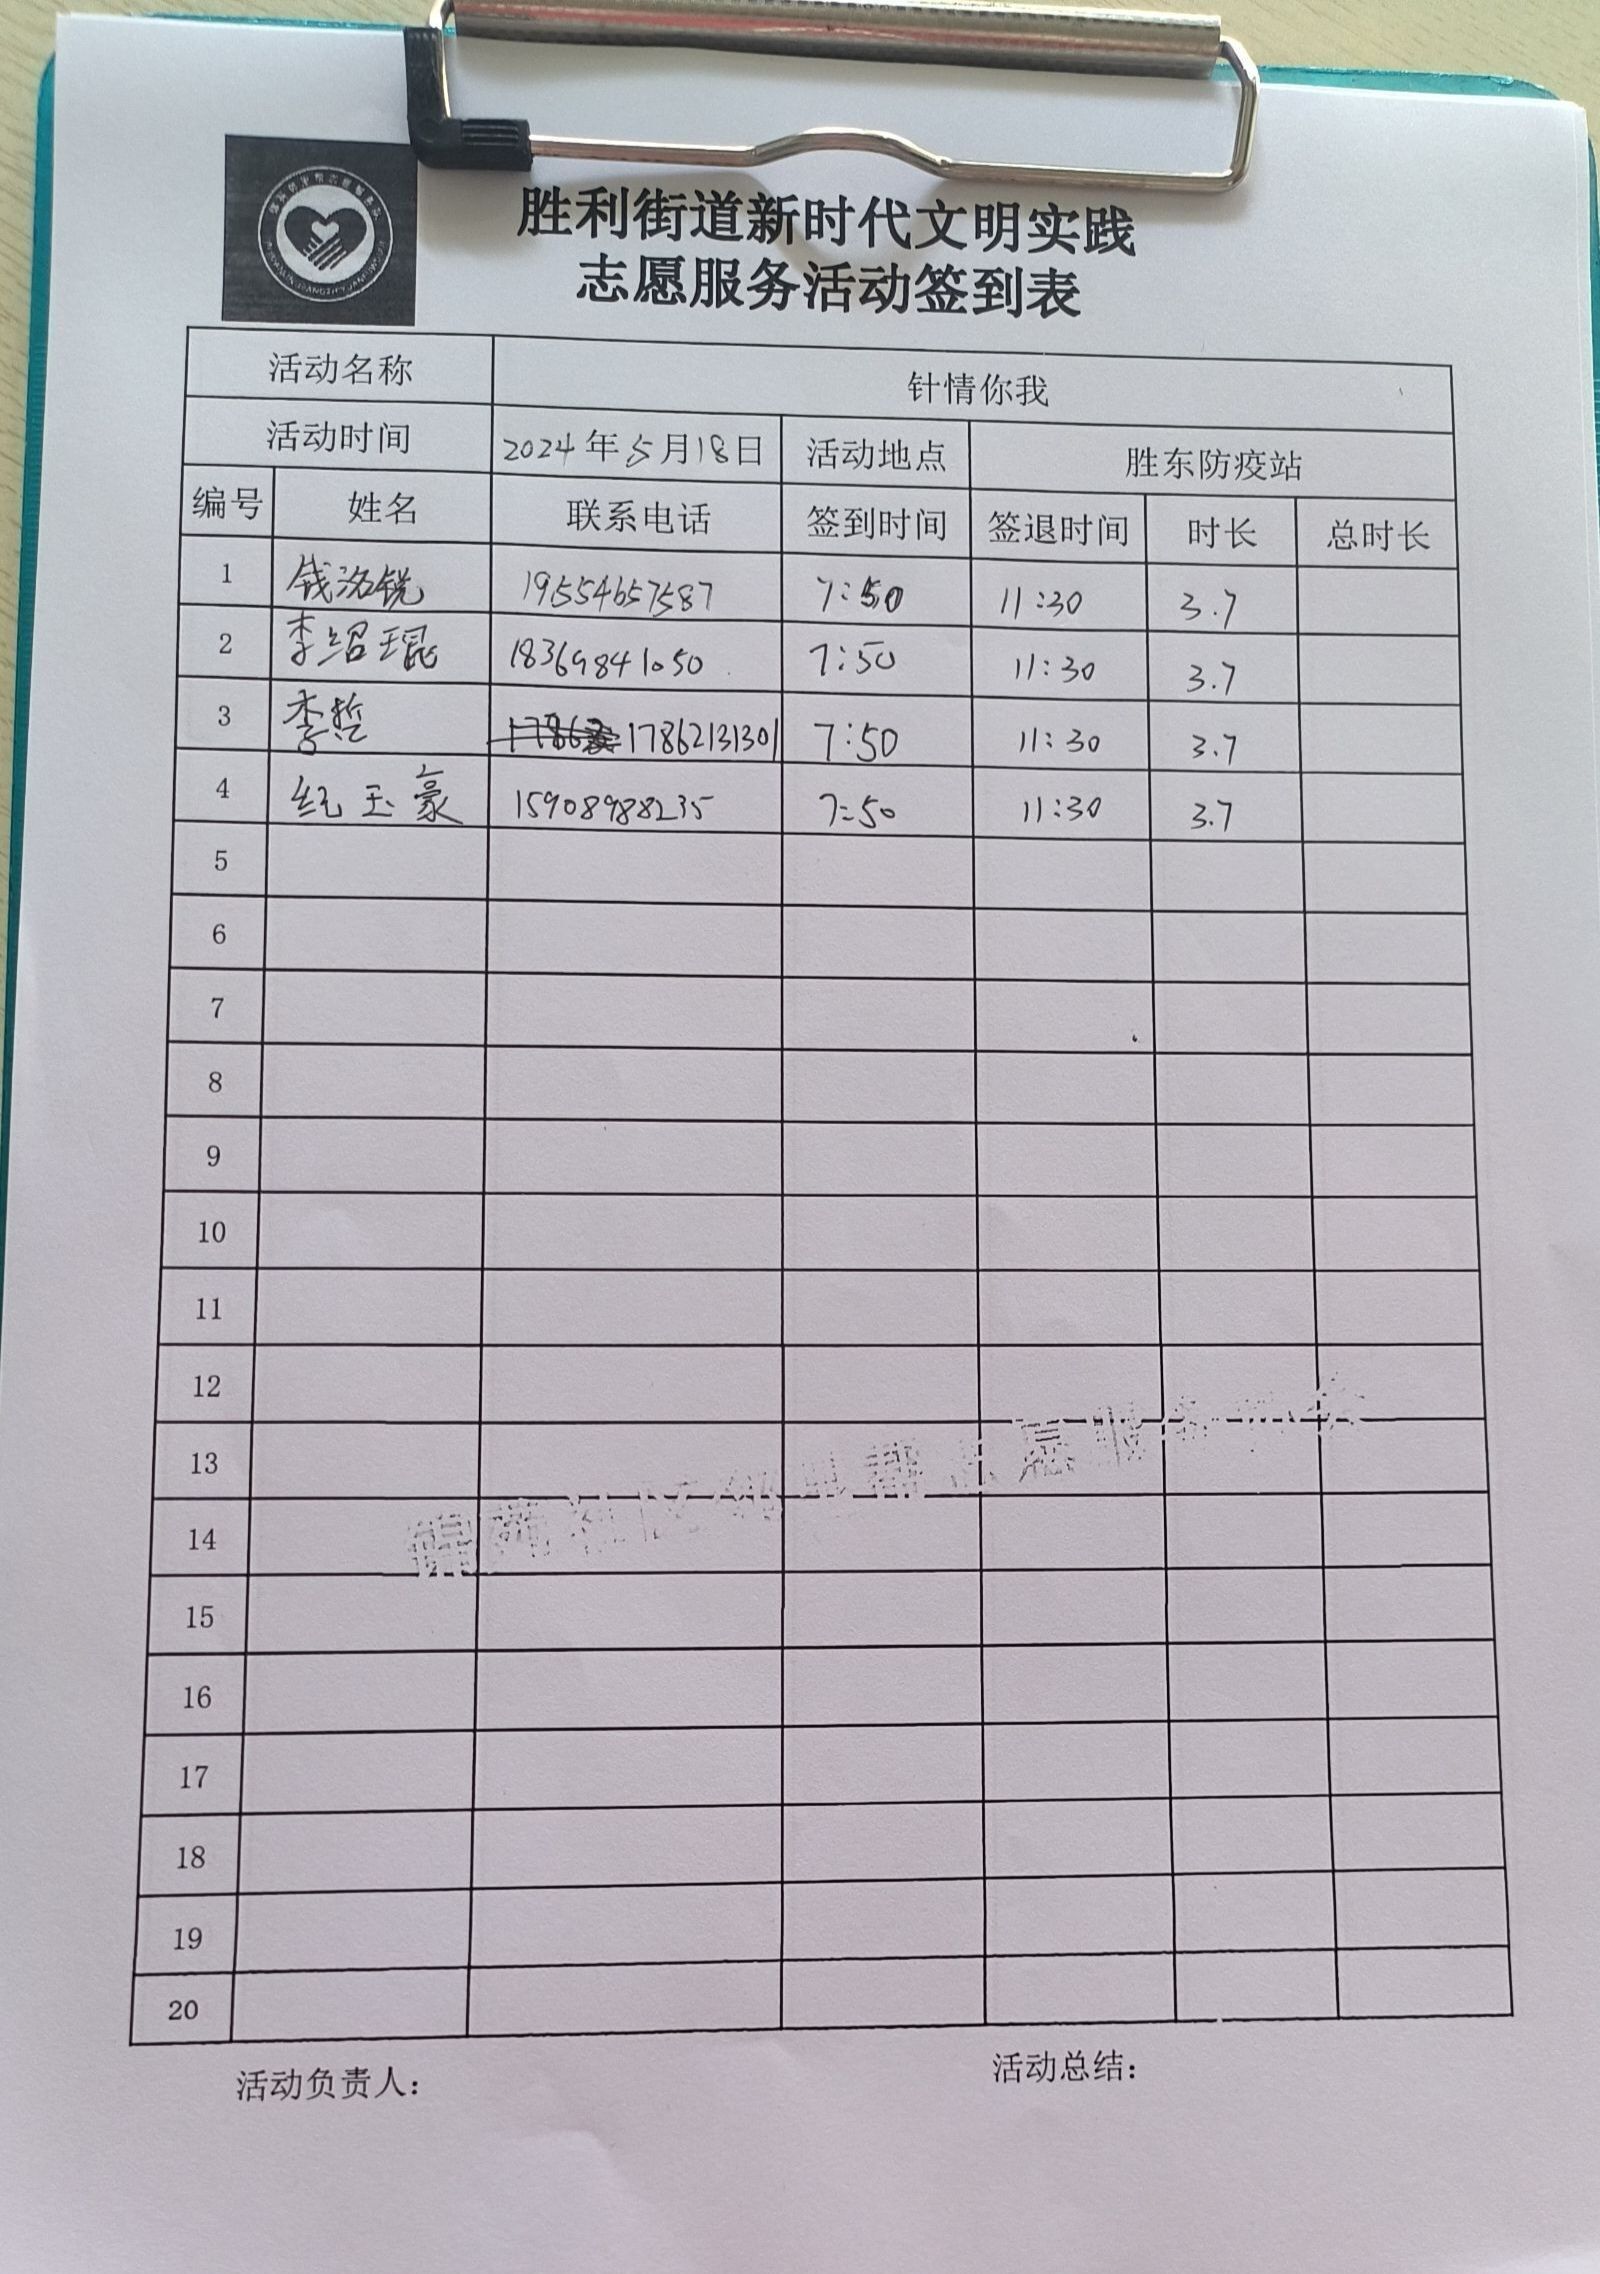 胜利街道新时代文明实践
志愿服务活动签到表
活动名称 针情你我
活动时间 2024年5月18日 活动地点 胜东防疫站
编号 姓名 联系电话 签到时间 签退时间 时长 总时长
1 钱洺锐 19554657587 7:50 11:30 3.7
2 李绍琨 18369841050 7:50 11:30 3.7
3 李哲 17862131301 7:50 11:30 3.7
4 纪玉豪 15908988235 7:50 11:30 3.7
5
6
7
8
9
10
11
12
13
14
15
16
17
18
19
20
活动负责人： 活动总结：